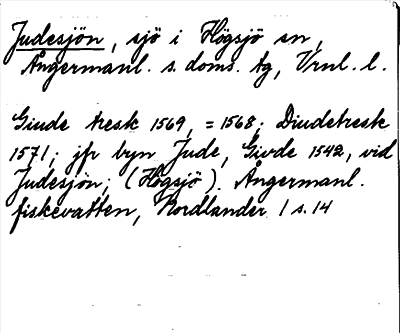 Judesjön, sjö i Högsjö sn,
Ångermanl. s. doms. tg, Vrnl. l.
Giude tresk 1569, = 1568; Diudetresk
1571; jfr byn Jude, Givde 1542, vid
Judesjön; (Högsjö). Ångermanl.
fiskevatten, Nordlander 1 s. 14